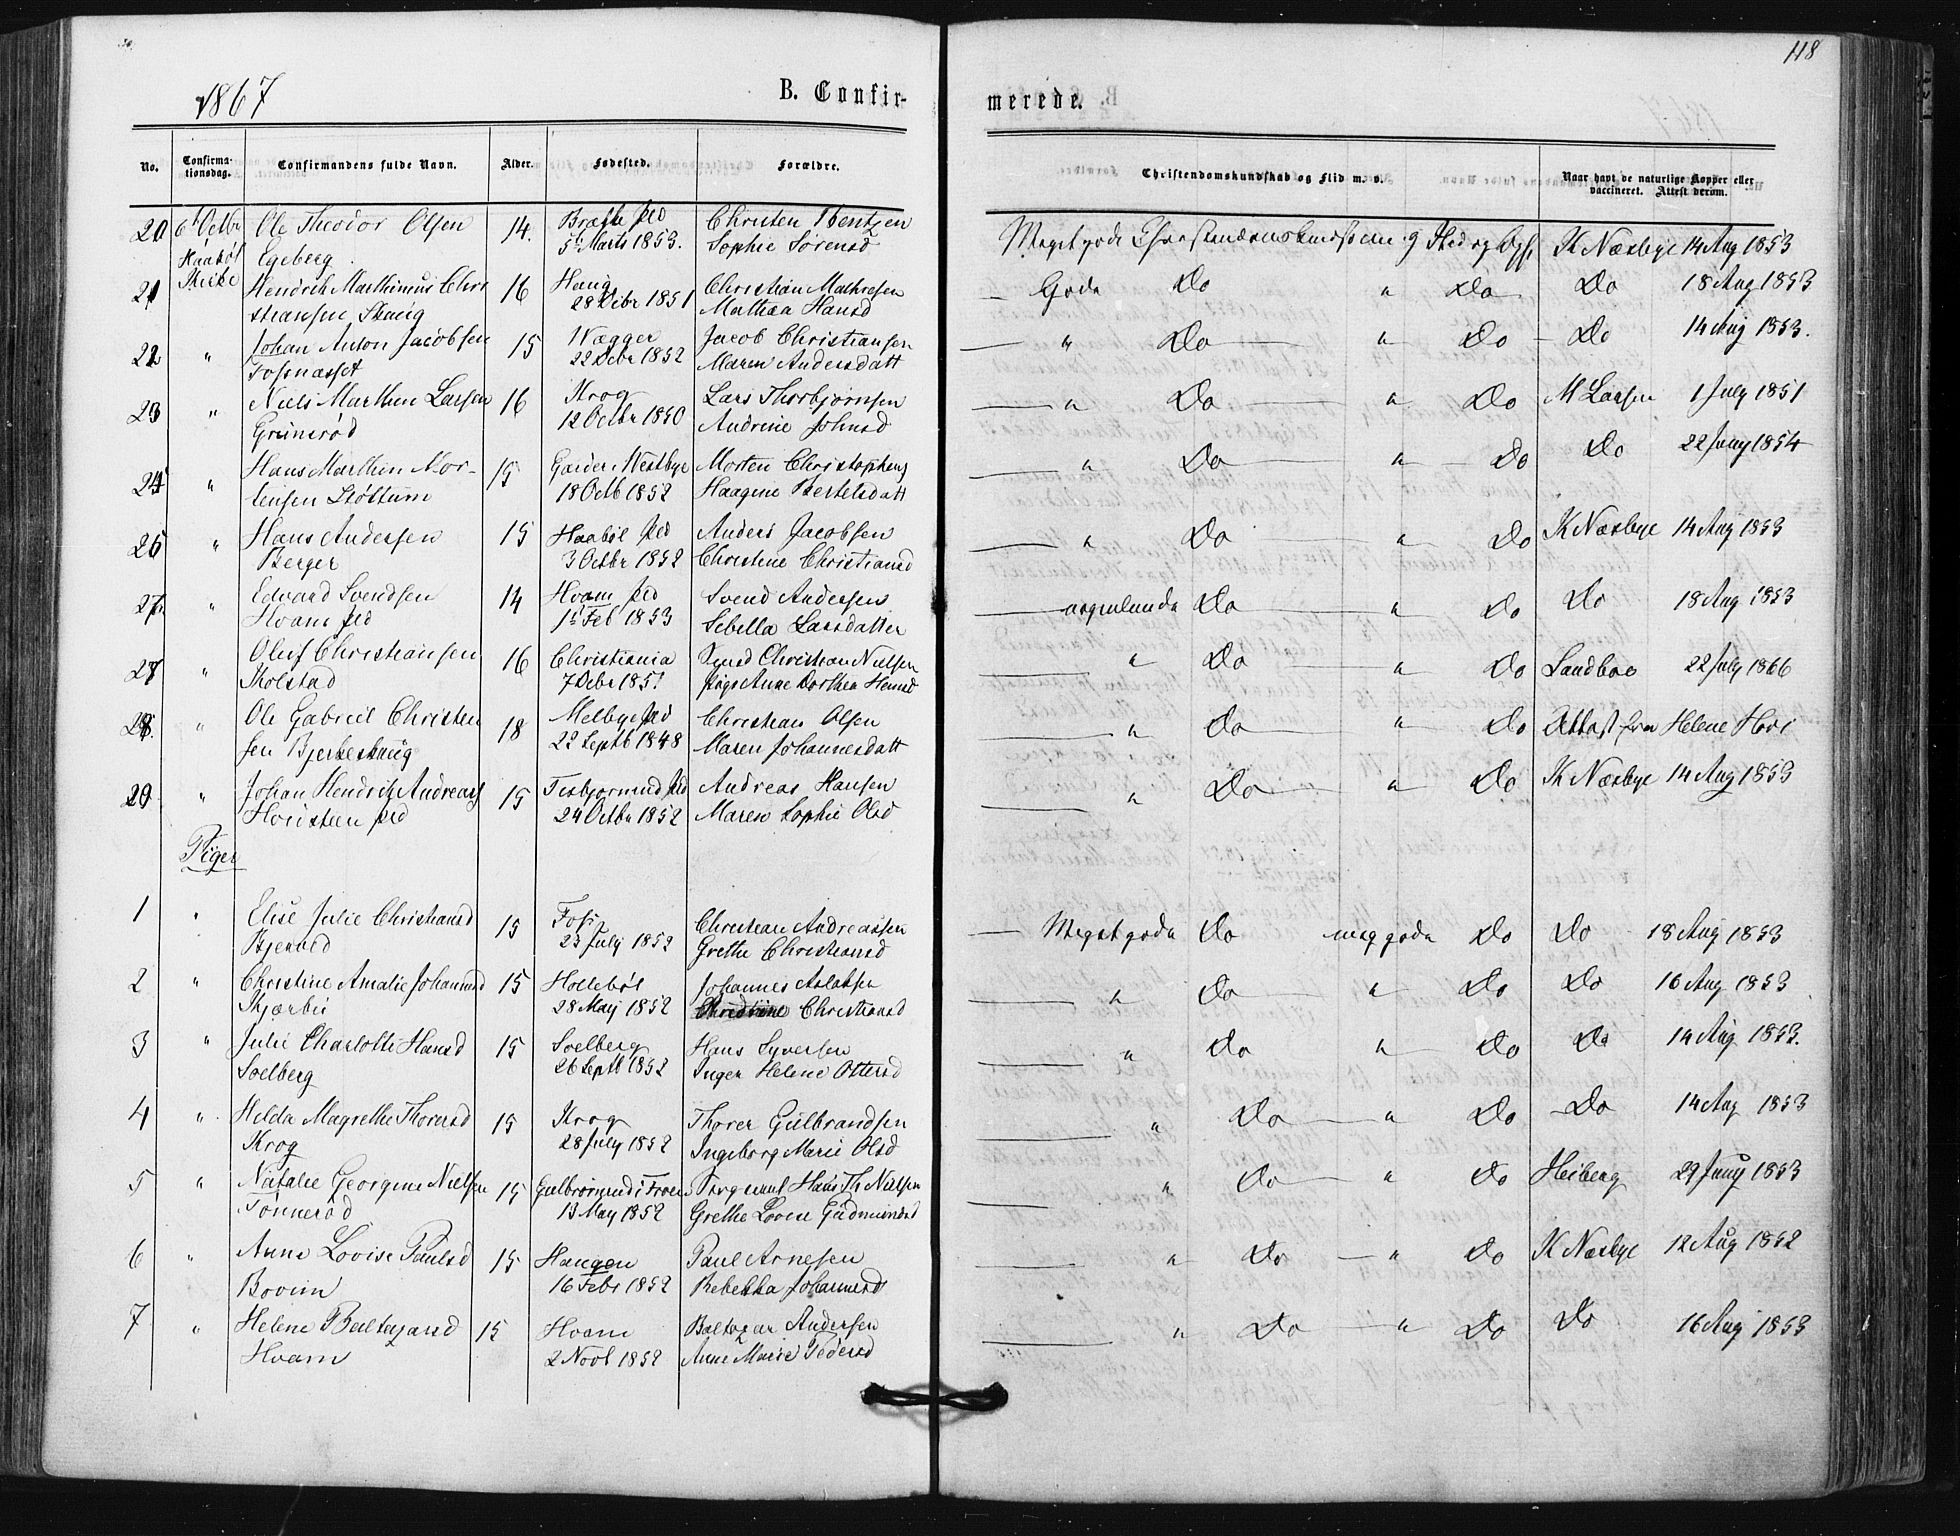 118
1867 B. Confir- merede.
No. Confirma-tionsdag. Confirmandens fulde Navn. Alder. Fødested. Forældre. Christendomskundskab og Flid m. v. Naar havt de naturlige Kopper eller vaccineret. Attest derom.
20 6t Octbr Ole Theodor Olsen 14. ped Christen Bentzen Meget gode K Næsbye 14 Aug 1853
Kraakst Egeberg 5t Marts 1853. Sophie Sørensd
21 Kirke Hendrik Marthinius Chri 16 Haug Christian Mathesen Gode Do " Do Do 18 Aug 1853
stiansen Skaug 28 Debr 1851 Mathea Hansd
22 " Johan Anton Jacobsen 15 Vegger Jacob Christiansen " Do " Do Do 14 Aug 1853.
Fossnasset 22 Debr 1852 Maren Andersdatt
23 " Niels Marthin Larsen 16 Krog Lars Thorbjørnsen " Do " Do M Larsen 1 July 1851
Grinerød 12 Octbr 1850 Andrine Johnsd
24 " Hans Marthin Mor- 15 Garder i Westbye Morten Christophers " Do " Do Do 22 Juny 1854
tensen Støttum 18 Octb 1852 Haagine Bertelsdatt
25 " Hans Andersen 15 Haabøl ped Anders Jacobsen " Do " Do K Næsbye 14 Aug 1853
Berger 3 Octbr 1852 Christine Christiansd
26 " Edvard Svendsen 14 Hvam ped Svend Andersen Do " Do Do 18 Aug 1853
Hvam ped 15 Feb 1853 Sebella Larsdatter
27 " Oluf Christiansen 16 Christiania Christian Nielsen " Do " Do Sandboe 22 July 1866
Kolstad 7 Debr 1851 Pige Anne Dorthea Hansd
28 " Ole Gabriel Christen 18 Melbye ped Christian Olsen " Do " Do Attest fra Helene Hovi
sen Bjerkeskaug 22 Septb 1848 Maren Johannesdatt
29 " Johan Hendrik Andreass 15 ped Andreas Hansen " Do " Do K Næsbye 14 Aug 1853
ped 24 Octbr 1852 Maren Sophie Olsd
Piger
1 " Elise Julie Christiansd 15 Foss Christian Andreassen Meget gode Do meg gode Do Do 18 Aug 1853
23 July 1852 Grethe Christiansd
2 " Christine Amalie Johannesd 15 Hollebøl Johannes Aslaksen " Do " Do Do 16 Aug 1853
Skjærbu 28 May 1852 Christine Christiansd
3 " Julie Charlotte Hansd 15 Solberg Hans Syversen " Do " Do Do 14 Aug 1853.
Solberg 26 Septb 1852 Inger Helene Ottersd
4 " Helda Magrethe Thoresd 15 Krog Thorer Gulbrandsen " Do " Do Do 14 Aug 1853
Krog 28 July 1852 Ingeborg Marie Olsd
5 " Natalie Georgine Nielsen 15 Hans Th Nielsen " Do " Do Heiberg 29 Juny 1853
Tønnerød 13 May 1852 Grethe Lovise Gudmundsd
6 " Anne Lovise Paulsd 15 Haugen Paul Arnesen " Do " Do K Næsbye 12 Aug 1852
Bovim 16 Febr 1852 Rebekka Johannesd
7 " Helene Baltazarsd 15 Hvam Baltazar Andersen " Do " Do Do 16 Aug 1853
Hvam 2 Novb 1852 Anne Marie Pedersd